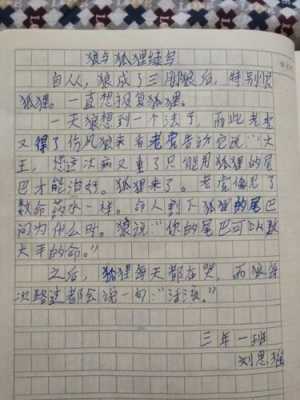 狼与狐狸续写
自从，狼成了三明狼后，特别恨
狐狸。一直想报复狐狸。
一天狼想到一个法子，而此老虎
又得了伤风狼来看老虎告诉它说："大
王，您这次病又重了只能用狐狸的尾
巴才能治好。狐狸来了。老虎像见了
救命药水一样。白人割下狐狸的尾巴
问为什么时。狼说"你的尾巴可以救
大王的命。"
之后，狐狸每天都在哭，而狼每
次路过都会说一句："活该。"
三年一班
刘思雅